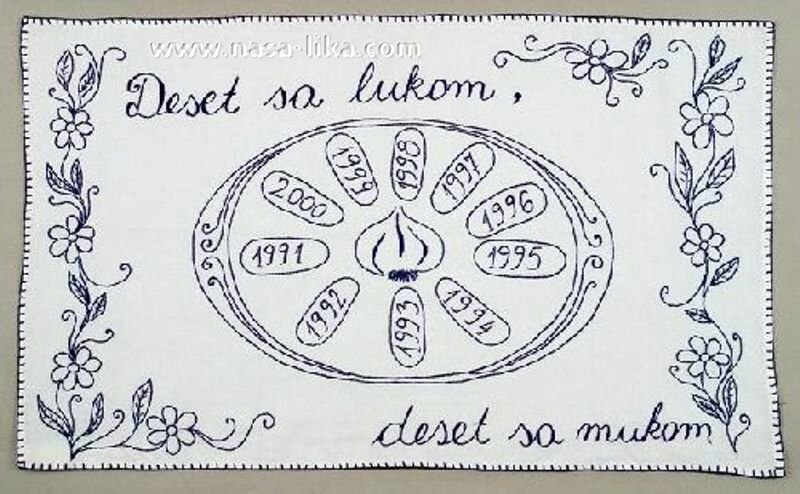 www.nasa-lika.com
Deset sa lukom,
1998
1999
1997
2000
1996
1991
1995
1992
1993
1994
deset sa mukom